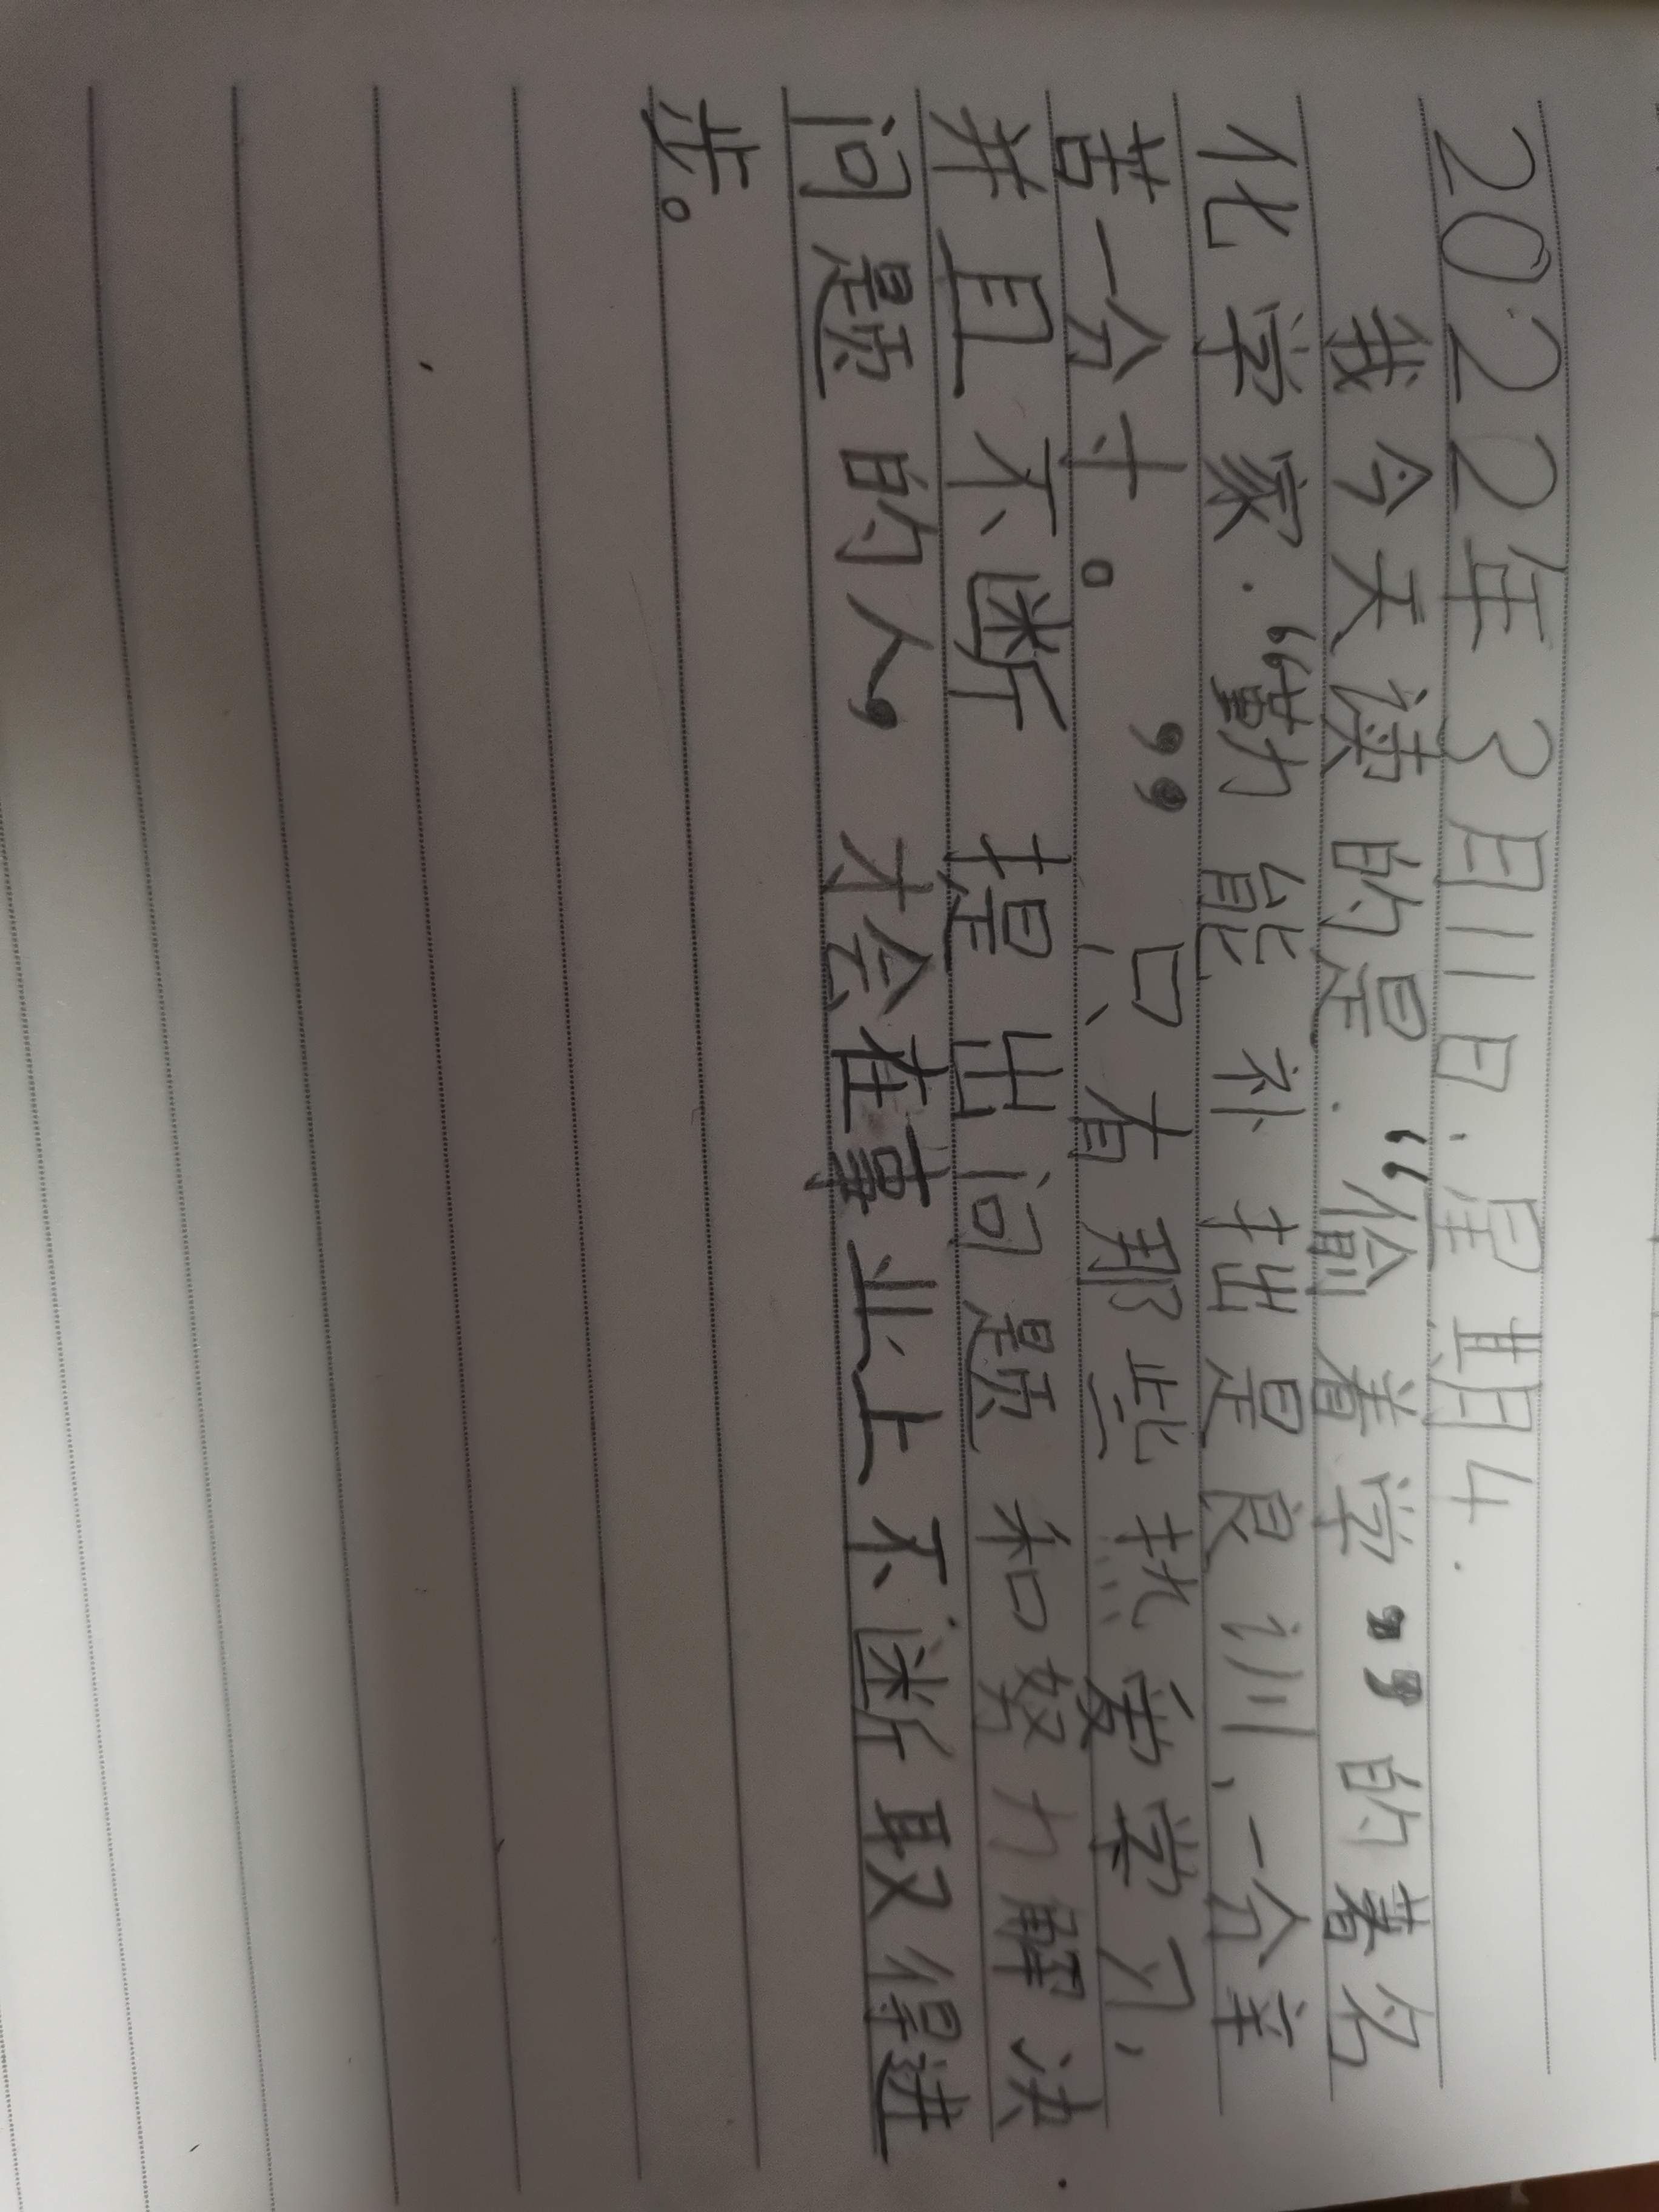 2022年3月11日.星期4.
我今天读的是.“偷着学”的著名
化学家.“勤能补拙是良训,一分辛
苦一分才。”只有那些热爱学习,
并且不断提出问题和努力解决
问题的人,才会在事业上不断取得进
步。